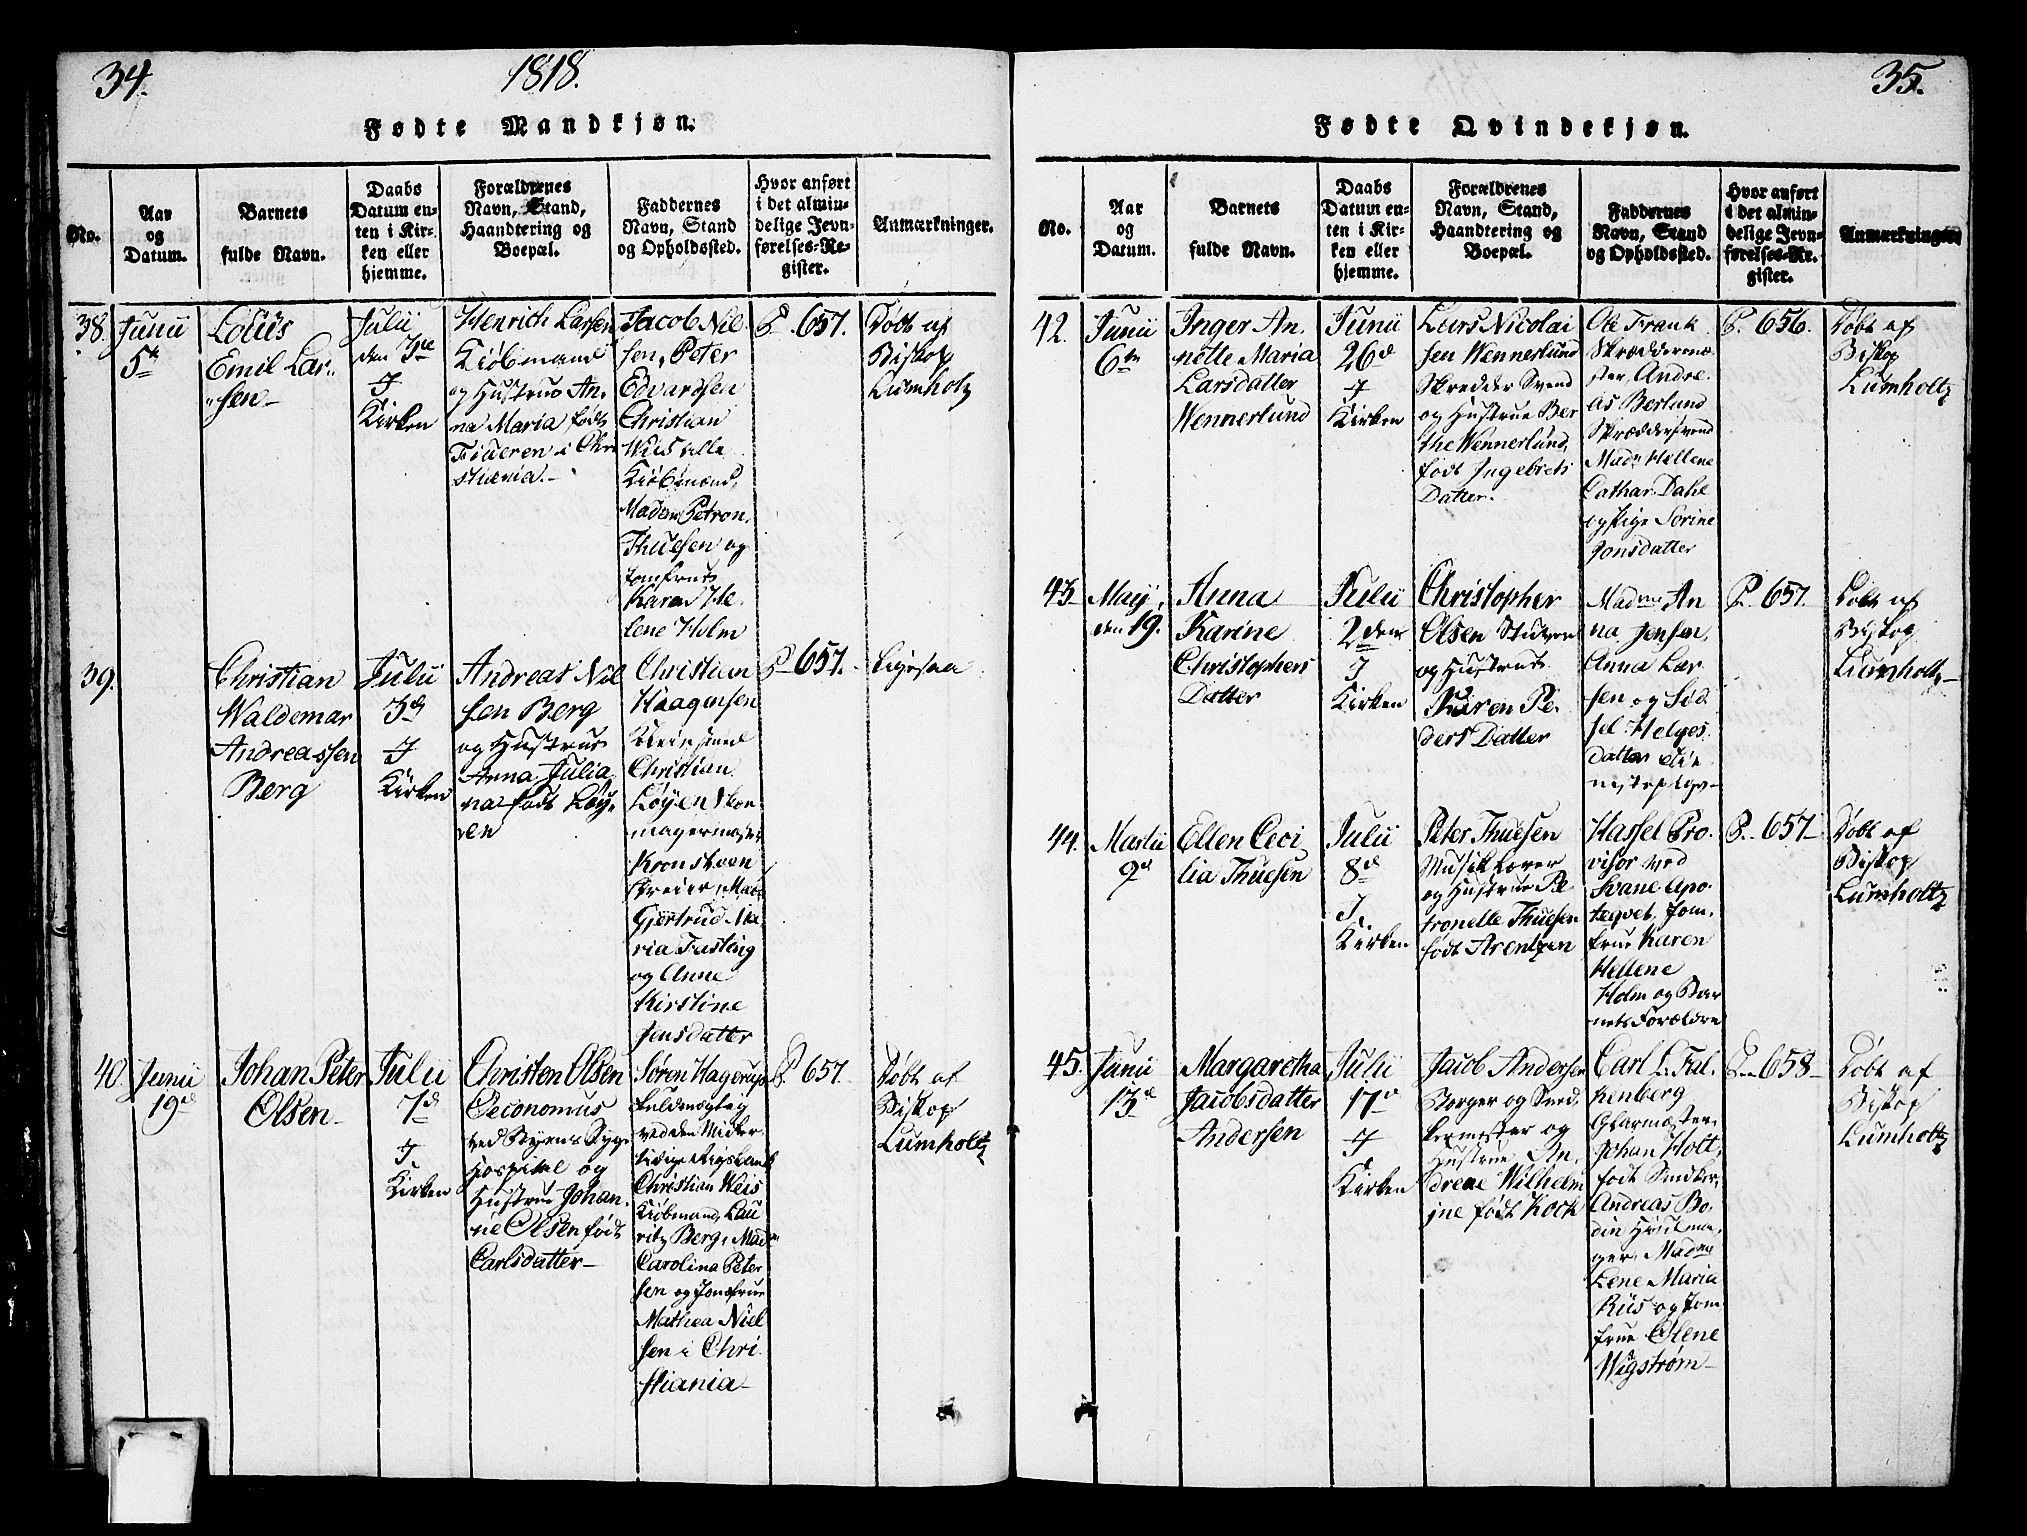 34.
1818.
Fødte Mandkjøn.
No.
Aar
og
Datum.
Barnets
fulde Navn.
Daabs
Datum en-
ten i Kir-
ken eller
hjemme.
Forældrenes
Navn, Stand,
Haandtering og
Boepæl.
Faddernes
Navn, Stand
og Opholdssted.
Hvor anført
i det almin-
delige Jevn-
førelses-Re-
gister.
Anmærkninger.
38.
Junii
5te
Louis
Emil Lar-
sen
Julii
den 3de
I
Kirken
Henrich Larsen
Kiöbmand
og Hustrue An-
na Maria født
i Chri
stiania.
Jacob Niel-
sen, Peter
Edvardsen
Christian
Kiöbmænd,
Madm Petron.
Thuesen og
Jomfrue
Karen He-
lene Holm
P. 657.
Döbt af
Biskop
Lumholtz
39.
Christian
Waldemar
Andreassen
Berg
Julii
3de
I
Kirken
Andreas Niel
sen Berg
og Hustrue
Anna Julia-
na født Löy-
en
Christian
Haagensen
Kleinsmed
Christian
Löyen Skoe-
magermester
Gjertrud Ma-
ria Fasting
og Anne
Kirstine
Jensdatter
P 657.
Ligesaa
40.
Junii
19de
Johan Peter
Olsen
Julii
7d
I
Kirken
Christen Olsen
Oeconomus
ved Byens Syge
Hospital og
Hustrue Johan-
ne Olsen født
Carlsdatter
Sören Hagerup
Fuldmægtig
ved den Midler-
tidige Rigsbank
Christian Weis
Kiöbmand, Lau
ritz Berg, Mad
Carolina Peter
sen og Jomfrue
Mathea Niel
sen i Chri-
stiania
P. 657.
Döbt af
Biskop
Lumholtz
35.
Fødte Qvindekjøn.
No.
Aar
og
Datum.
Barnets
fulde Navn.
Daabs
Datum en-
ten i Kir-
ken eller
hjemme.
Forældrenes
Navn, Stand,
Haandtering og
Boepæl.
Faddernes
Navn, Stand
og Opholdssted.
Hvor anført
i det almin-
delige Jevn-
førelses-Re-
gister.
Anmærkninger
42.
Junii
6te
Inger An-
nette Maria
Larsdatter
Wennerlund
Junii
26d
I
Kirken
Lars Nicolai
sen Wennerlund
Skredder Svend
og Hustrue Ber
the Wennerlund,
født Ingebrets
Datter.
Ole Frank
Skrædderme-
ster, Andre-
as Berlund
Skræddersvend
Madm Hellene
Cathar. Dahl
og Pige Sorine
Jonsdatter
P. 656.
Döbt af
Biskop
Lumholtz
43.
Maij
den 19.
Anna
Karine
Christophers
Datter
Julii
2den
I
Kirken
Christopher
Olsen
og Hustrue
Karen Pe-
ders Datter
Madme An
na Jensen,
Anna Lar-
sen og
Helges
Datter
P. 657.
Döbt af
Biskop
Lumholtz
44.
Martii
9d
Ellen Ceci
lia Thuesen
Julii
8d
I
Kirken
Peter Thuesen
Musik Lærer
og Hustrue Pe-
tronelle Thuesen
født Arentzen
Hassel Pro-
visor ved
Svane Apo-
teqvet, Jom-
frue Karen
Hellene
Holm og Bar
nets Forældre
P. 657
Döbt af
Biskop
Lumholtz
45.
Junii
13d
Margaretha
Jacobsdatter
Andersen
Julii
17d
I
Kirken
Jacob Andersen
Borger og Sned-
kermester og
Hustrue An-
drene Wilhelm
ine født Kock
Carl L. Fal-
kenberg
Glarmester,
Johan Holt,
Snedker,
Andreas Bo-
din
Madme
Lene Maria
Riis og Jom-
frue Olene
Wigström
P. 658
Döbt af
Biskop
Lumholtz